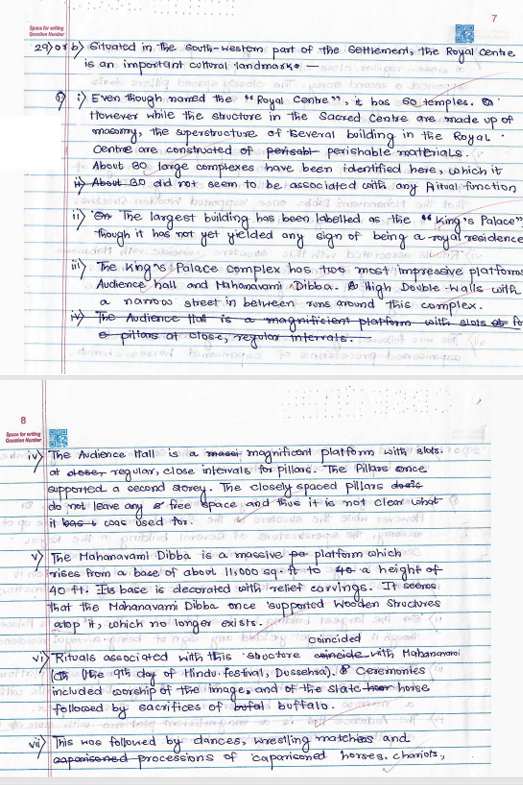 7
Space for writing
Question Number
29) or b) Situated in the South-western part of the Settlement, the Royal Centre
is an important cultural landmark. —
i) Even though named the "Royal Centre", it has 60 temples.
However while the structure in the Sacred Centre are made up of
masonry, the superstructure of several building in the Royal
Centre are constructed of perisabl perishable materials.
About 30 large complexes have been identified here, which it
ii) About 30 did not seem to be associated with any Ritual function
ii) The largest building has been labelled as the "King's Palace"
though it has not yet yielded any sign of being a royal residence
iii) The King's Palace complex has two most impressive platform
Audience hall and Mahanavami Dibba. High Double-Walls with
a narrow street in between runs around this complex.
iv) The Audience Hall is a magnificient platform with slots at fo
pillars at close, regular intervals.
8
Space for writing
Question Number
iv) The Audience Hall is a massi magnificant platform with slots.
at closer regular, close intervals for pillars. The Pillars once
supported a second storey. The closely spaced pillars
do not leave any free space and thus it is not clear what
it was used for.
v) The Mahanavami Dibba is a massive platform which
rises from a base of about 11,000 sq. ft to 40 a height of
40 ft. Its base is decorated with relief carvings. It seems
that the Mahanavami Dibba once supported Wooden Structures
atop it, which no longer exists.
coincided
vi) Rituals associated with this structure coincide with Mahanavami
(the 9th day of Hindu festival, Dussehra). Ceremonies
included worship of the image, and of the state horse
followed by sacrifices of bufal buffalo.
vii) This was followed by dances, wrestling matches and
caparisoned processions of caparisoned horses, chariots,